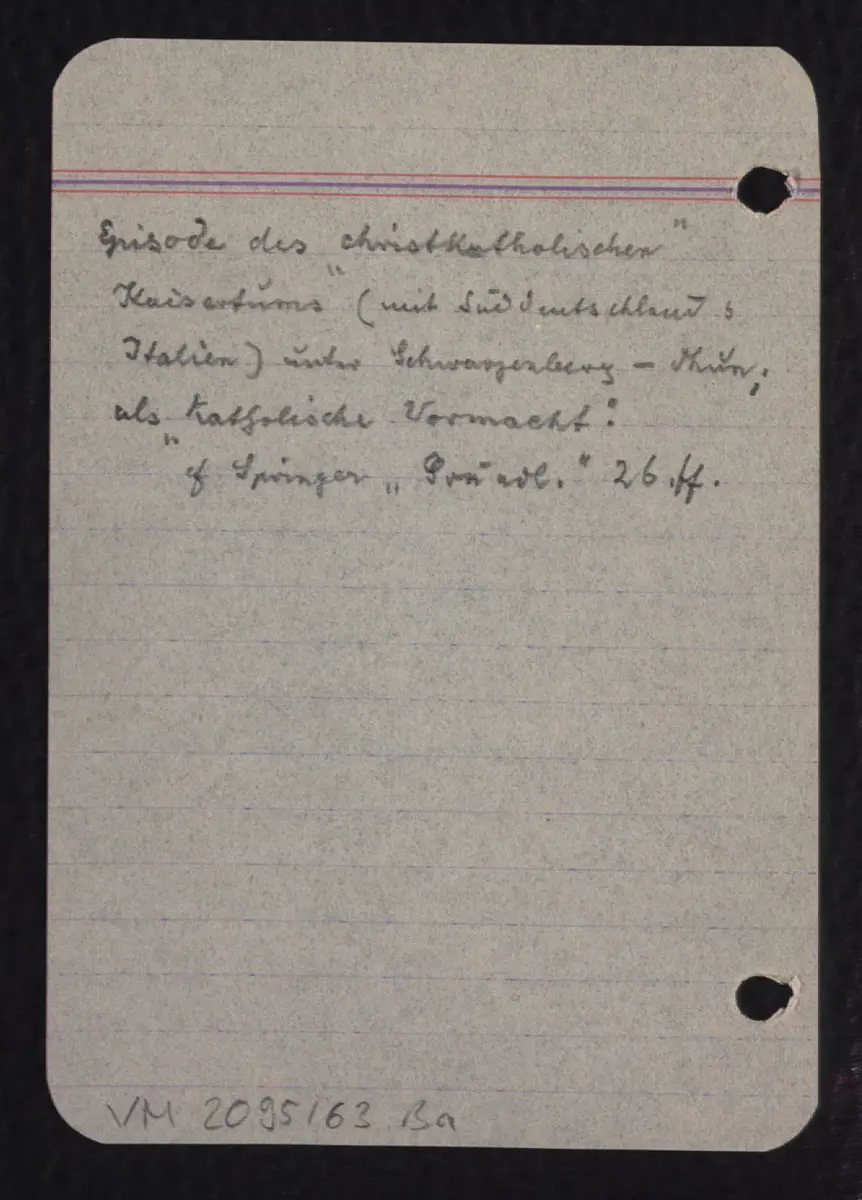 Episode des "christkatholischen"
Kaisertums (mit Süddeutschland &
Italien) unter Schwarzenberg – Thun;
als "katholische Vormacht":
cf Springer „Grundl." 26 ff.
VM 2095/63 Ba